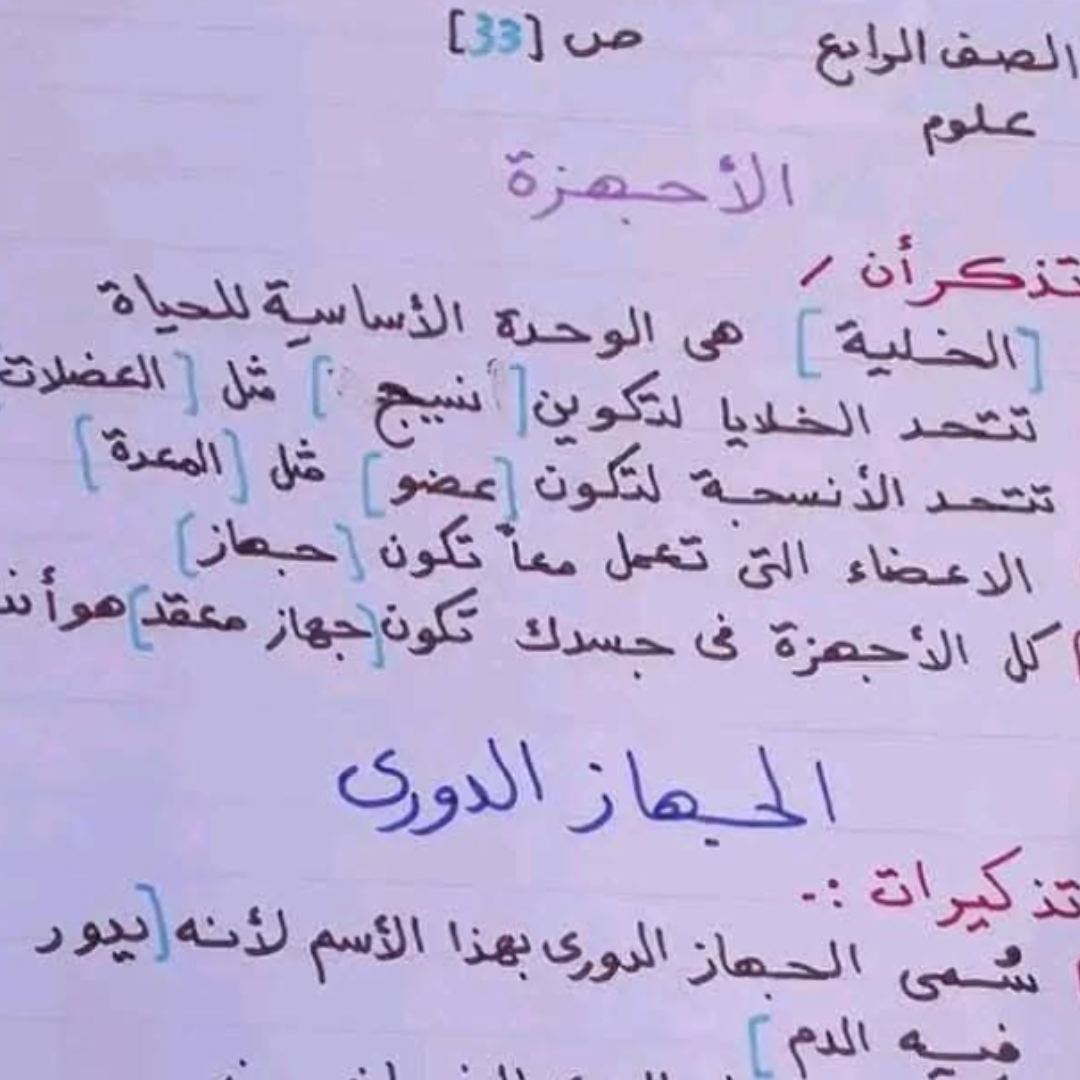 الصف الرابع ص [33]
علوم
الأجهزة
تذكر أن /
[الخلية] هى الوحدة الأساسية للحياة
تتحد الخلايا لتكوين [نسيج] مثل [العضلات]
تتحد الأنسجة لتكون [عضو] مثل [المعدة]
الاعضاء التى تعمل معاً تكون [جهاز]
كل الأجهزة فى جسدك تكون [جهاز معقد] هو
الجهاز الدورى
تذكيرات :-
سُمى الجهاز الدورى بهذا الأسم لأنه [يدور
فيه الدم]